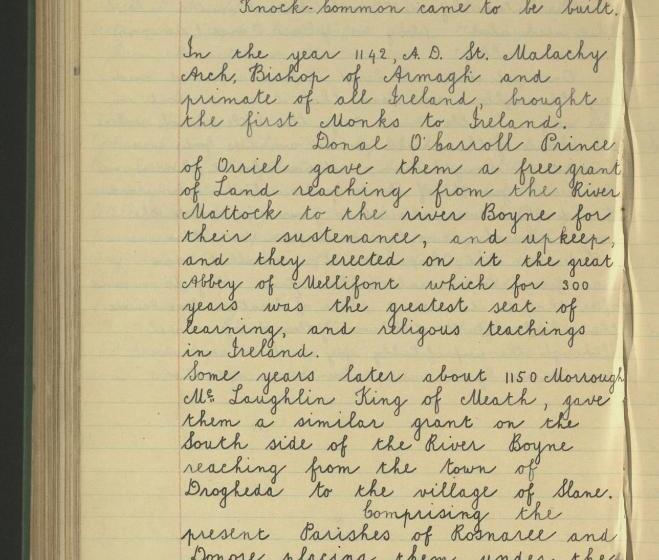 Knock-Common came to be built.
In the year 1142, A.D. St. Malachy
Arch. Bishop of Armagh and
primate of all Ireland, brought
the first Monks to Ireland.
Donal O'Carroll Prince
of Orriel gave them a free grant
of Land reaching from the River
Mattock to the river Boyne for
their sustenance, and upkeep,
and they erected on it the great
Abbey of Mellifont which for 300
years was the greatest seat of
learning, and religous teachings
in Ireland.
Some years later about 1150 Morrough
Mc Laughlin King of Meath, gave
them a similar grant on the
South side of the River Boyne
reaching from the town of
Drogheda to the village of Slane.
Comprising the
present Parishes of Rosnaree and
Donore placing them under the